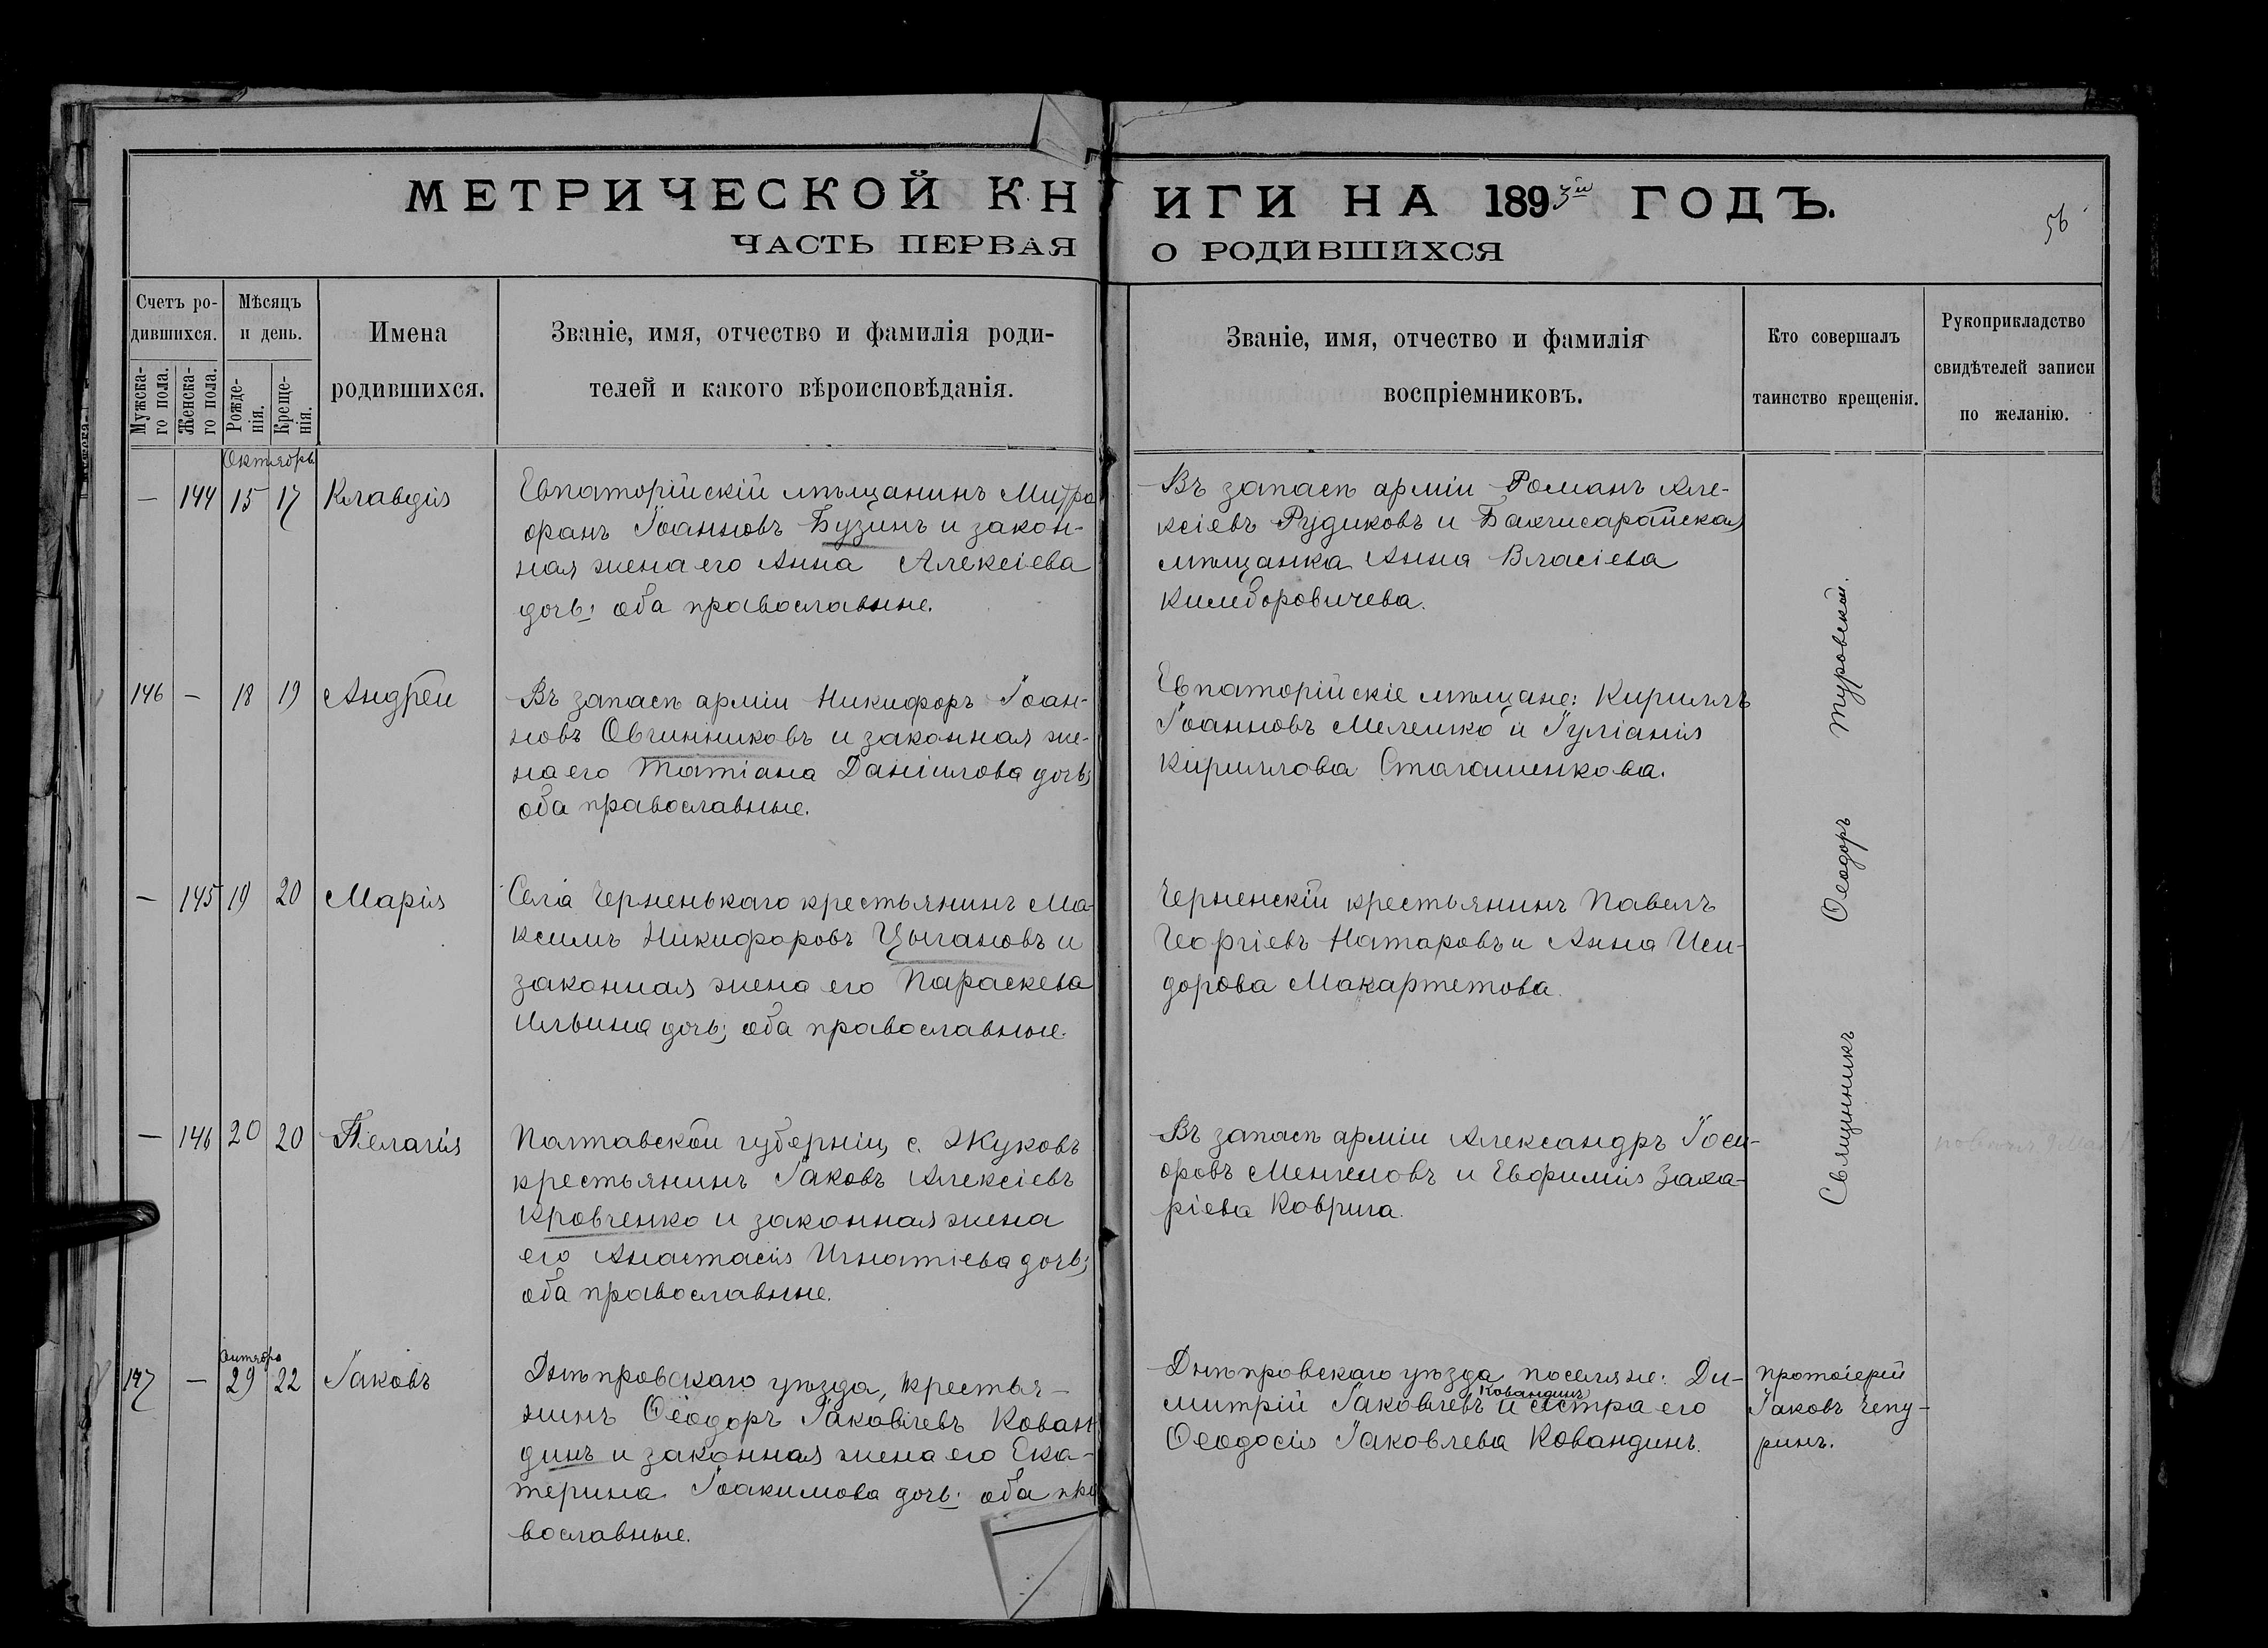 МЕТРИЧЕСКОЙ КНИГИ НА 1893й ГОДЪ.
56
ЧАСТЬ ПЕРВАЯ О РОДИВШИХСЯ
Счетъ ро-
дившихся.
Мужска-
го пола.
Женска-
го пола.
Мѣсяцъ
и день.
Рожде-
нія.
Креще-
нія.
Имена
родившихся.
Званіе, имя, отчество и фамилія роди-
телей и какого вѣроисповѣданія.
Званіе, имя, отчество и фамилія
воспріемниковъ.
Кто совершалъ
таинство крещенія.
Рукоприкладство
свидѣтелей записи
по желанію.
Октябрь
— 144 15 17 Клавдія
Евпаторійскій мѣщанинъ Митро
фанъ Іоанновъ Бузинъ и закон-
ная жена его Анна Алексіева
дочь; оба православные.
Въ запасѣ арміи Романъ Але-
ксіевъ Рудиковъ и Бахчисарайская
мѣщанка Анна Власіева
146 — 18 19 Андрей
Въ запасѣ арміи Никифоръ Іоан-
новъ Овчинниковъ и законная же-
на его Татіана Даніилова дочь;
оба православные.
Евпаторійскіе мѣщане: Кириллъ
Іоанновъ Мелешко и Іуліанія
Кириллова Стагашенкова.
— 145 19 20 Марія
Села Черненькаго крестьянинъ Ма-
ксимъ Никифоровъ Цыгановъ и
законная жена его Параскева
Ильина дочь; оба православные.
Черненскій крестьянинъ Павелъ
Георгіевъ Натаровъ и Анна Иси-
дорова Макартетова.
— 146 20 20 Пелагія
Полтавской губерніи, с. Жуковъ
крестьянинъ Іаковъ Алексіевъ
Кровченко и законная жена
его Анастасія Игнатіева дочь;
оба православные.
Въ запасѣ арміи Александръ Іоси-
форовъ и Евфимія Заха-
ріева Коврига.
Священникъ Ѳеодоръ Туровскій.
147 — 29 22 Іаковъ
Днѣпровскаго уѣзда, крестья-
нинъ Ѳеодоръ Іаковлевъ Кован
динъ и законная жена его Ека-
терина Іоакимова дочь; оба пра
вославные.
Днѣпровскаго уѣзда поселяне: Ди-
Ковандинъ
митрій Іаковлевъ и сестра его
Ѳеодосія Іаковлева Ковандинъ.
протоіерей
Іаковъ Чепу-
ринъ.